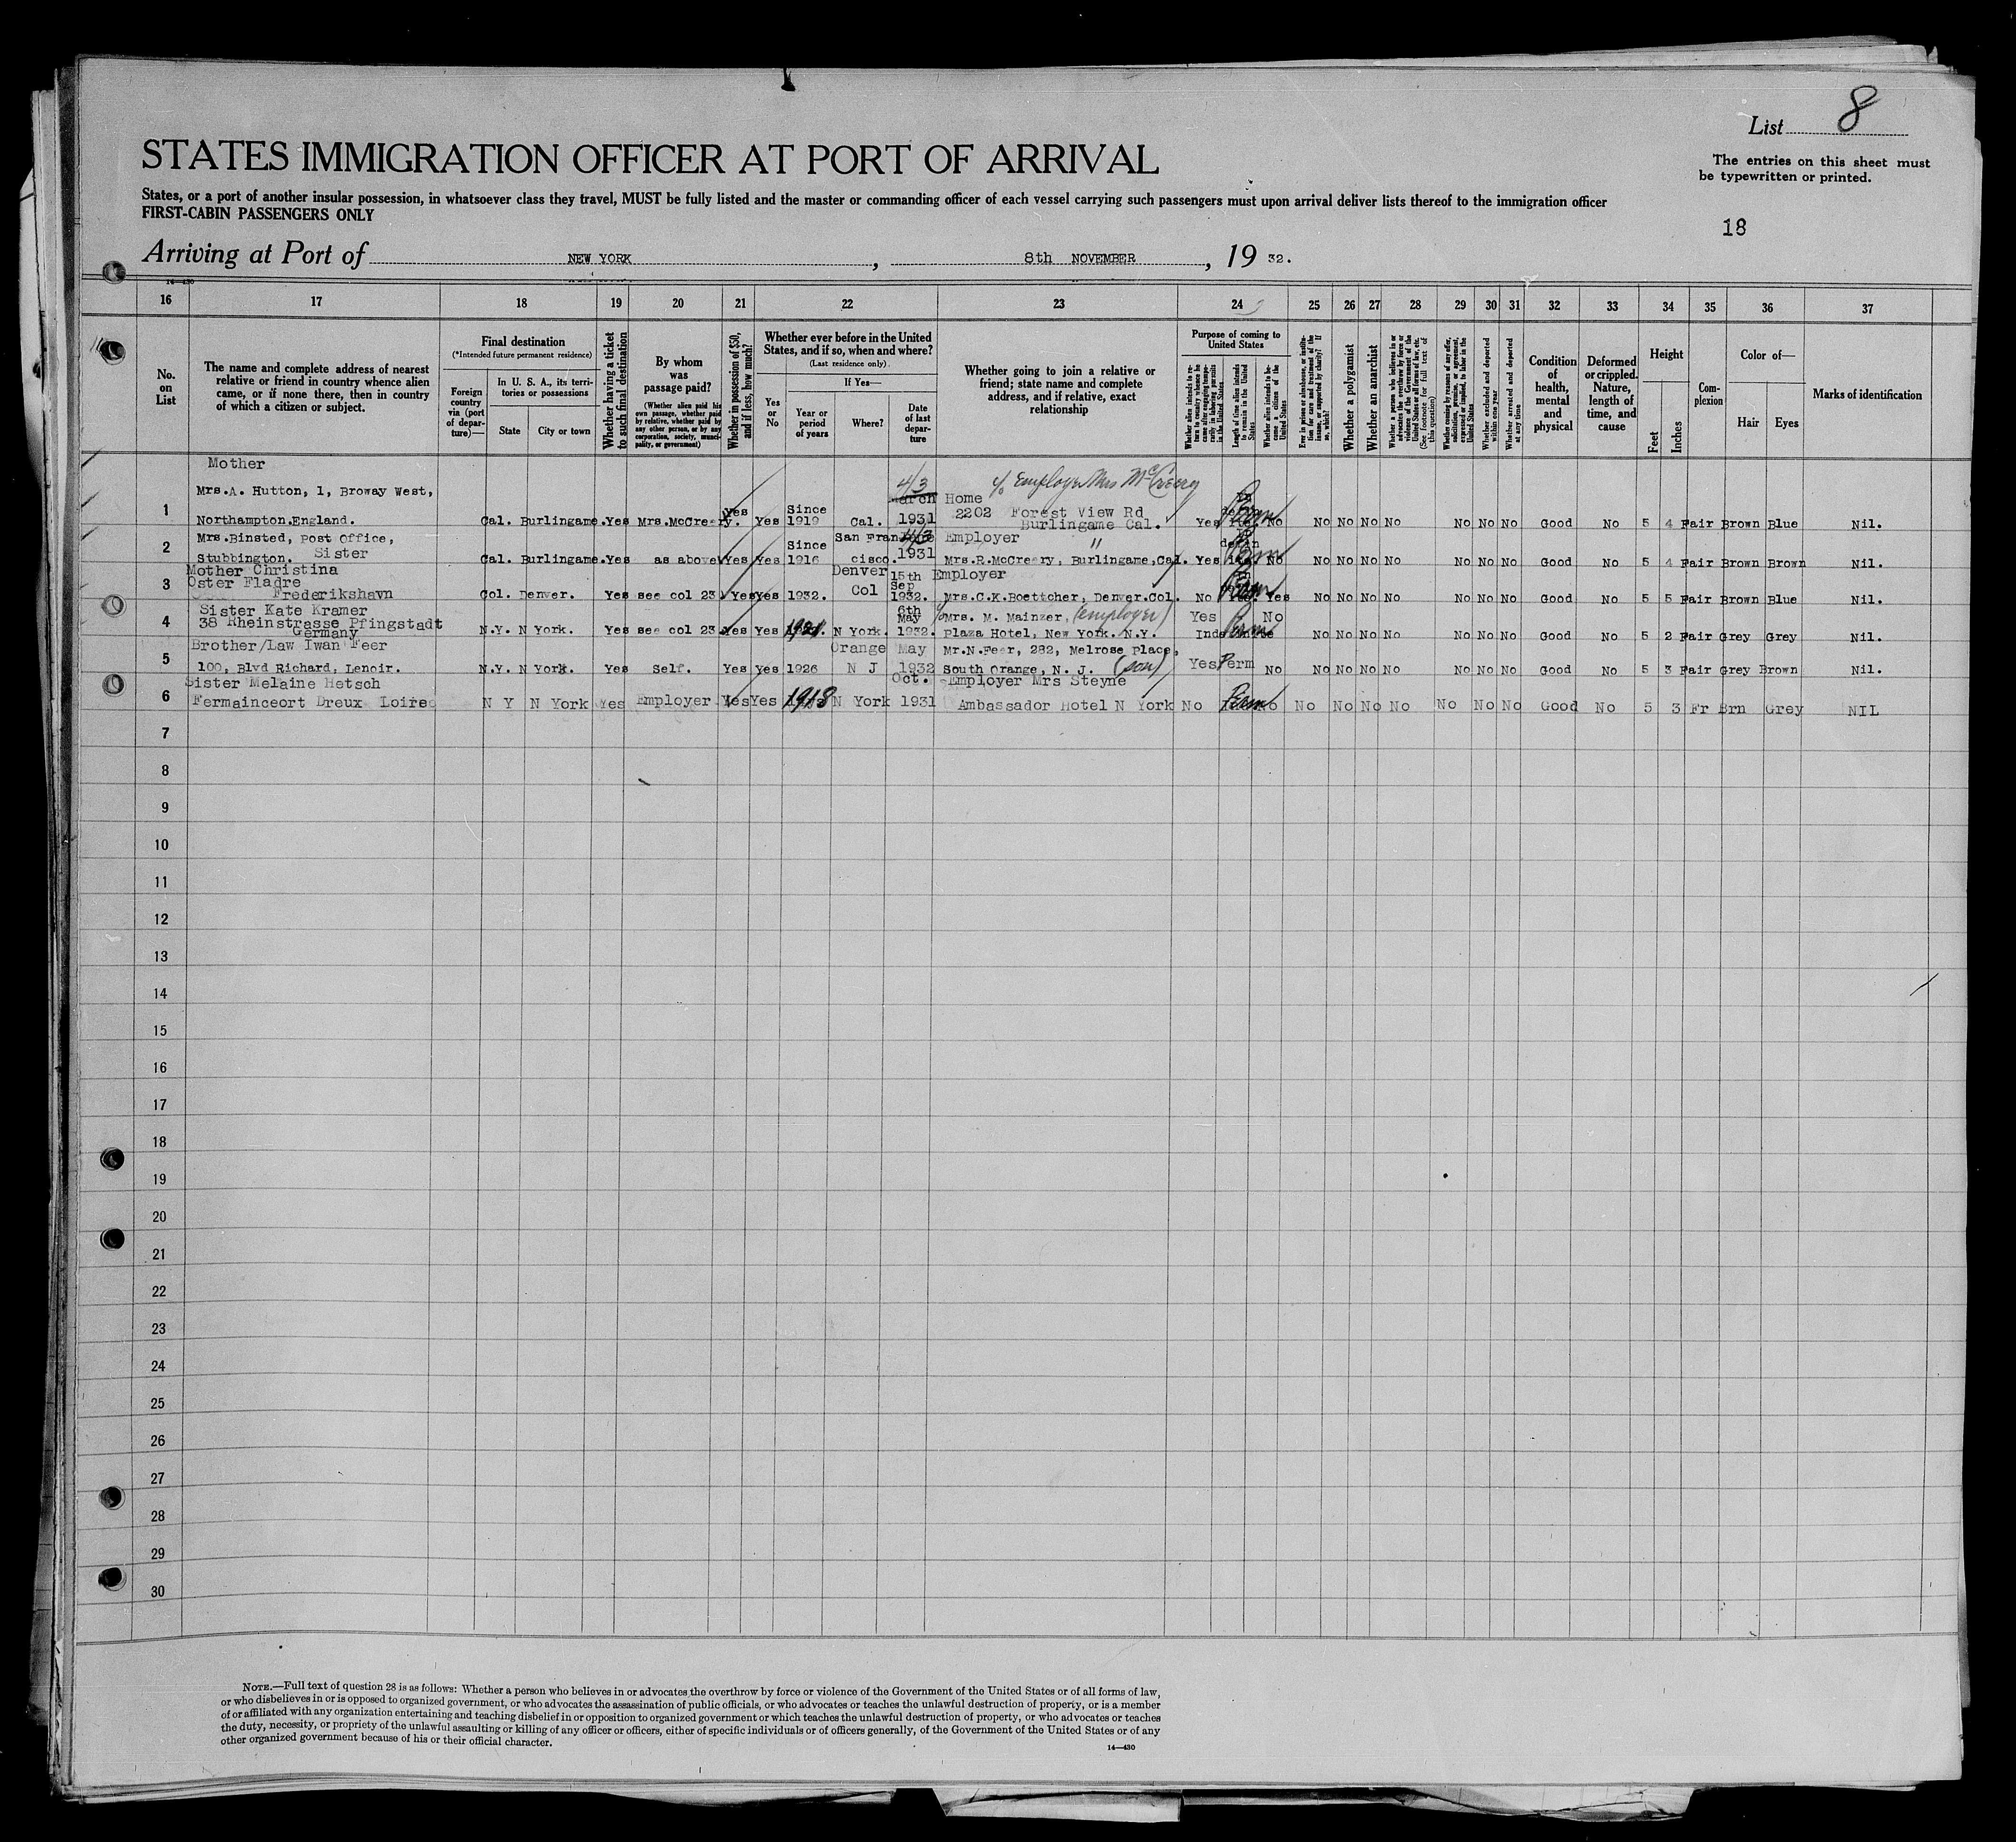 List 8
STATES IMMIGRATION OFFICER AT PORT OF ARRIVAL
The entries on this sheet must
be typewritten or printed.
States, or a port of another insular possession, in whatsoever class they travel, MUST be fully listed and the master or commanding officer of each vessel carrying such passengers must upon arrival deliver lists thereof to the immigration officer
FIRST-CABIN PASSENGERS ONLY
18
Arriving at Port of NEW YORK, 8th NOVEMBER, 19 32.
14—430
16 17 18 19 20 21 22 23 24 25 26 27 28 29 30 31 32 33 34 35 36 37
No. on List
The name and complete address of nearest
relative or friend in country whence alien
came, or if none there, then in country
of which a citizen or subject.
Final destination
(*Intended future permanent residence)
Foreign country via (port of departure)—
In U. S. A., its territories or possessions
State
City or town
Whether having a ticket to such final destination
By whom was passage paid?
(Whether alien paid his own passage, whether paid by relative, whether paid by any other person, or by any corporation, society, municipality, or government)
Whether in possession of $50, and if less, how much?
Whether ever before in the United States, and if so, when and where?
(Last residence only)
Yes or No
If Yes—
Year or period of years
Where?
Date of last departure
Whether going to join a relative or
friend; state name and complete
address, and if relative, exact
relationship
Purpose of coming to United States
Whether alien intends to return to country whence he came after engaging temporarily in laboring pursuits in the United States
Length of time alien intends to remain in the United States
Whether alien intends to become a citizen of the United States
Ever in prison or almshouse, or institution for care and treatment of the insane, or supported by charity? If so, which?
Whether a polygamist
Whether an anarchist
Whether a person who believes in or advocates the overthrow by force or violence of the Government of the United States or of all forms of law, etc. (See footnote for full text of this question)
Whether coming by reasons of any offer, solicitation, promise, or agreement, expressed or implied, to labor in the United States
Whether excluded and deported within one year
Whether arrested and deported at any time
Condition of health, mental and physical
Deformed or crippled. Nature, length of time, and cause
Height
Feet
Inches
Complexion
Color of—
Hair
Eyes
Marks of identification
Mother
c/o Employer Mrs McCreery
Mrs.A. Hutton, 1, Broway West, 4/3 March Home
1 Since 2202 Forest View Rd
Northampton.England. Cal. Burlingame. Yes Mrs.McCreery. Yes Yes 1919 Cal. 1931 Burlingame Cal. Yes Perm No No No No No No No No Good No 5 4 Fair Brown Blue Nil.
Mrs.Binsted, Post Office, San Francisco 4/3 Employer "
2 Since
Stubbington. Sister Cal. Burlingame. Yes as above Yes Yes 1916 cisco. 1931 Mrs.R.McCreery, Burlingame,Cal. Yes Perm No No No No No No No No Good No 5 4 Fair Brown Brown Nil.
Mother Christina Denver 15th Employer
3 Oster Fladre Col Sep
Frederikshavn Col. Denver. Yes see col 23 Yes Yes 1932. 1932. Mrs.C.K.Boettcher, Denver.Col. No Perm Yes No No No No No No No Good No 5 5 Fair Brown Blue Nil.
Sister Kate Kramer 6th
4 38 Rheinstrasse Pfingstadt May c/o Mrs. M. Mainzer, (employer) Yes No
Germany N.Y. N York. Yes see col 23. Yes Yes 1921. N York. 1932. Plaza Hotel, New York. N.Y. Indefinite Perm No No No No No No No Good No 5 2 Fair Grey Grey Nil.
Brother/Law Iwan Feer Orange May Mr.N.Feer, 282, Melrose Place,
5 100, Blvd Richard, Lenoir. N.Y. N York. Yes Self. Yes Yes 1926 N J 1932 South Orange, N. J. (son) Yes Perm No No No No No No No No Good No 5 3 Fair Grey Brown Nil.
Sister Melaine Hetsch Oct. Employer Mrs Steyne
6 Fermainceort Dreux Loires N Y N York Yes Employer Yes Yes 1918 N York 1931 Ambassador Hotel N York No Perm No No No No No No No No Good No 5 3 Fr Brn Grey NIL
7
8
9
10
11
12
13
14
15
16
17
18
19
20
21
22
23
24
25
26
27
28
29
30
NOTE.—Full text of question 28 is as follows: Whether a person who believes in or advocates the overthrow by force or violence of the Government of the United States or of all forms of law,
or who disbelieves in or is opposed to organized government, or who advocates the assassination of public officials, or who advocates or teaches the unlawful destruction of property, or is a member
of or affiliated with any organization entertaining and teaching disbelief in or opposition to organized government or which teaches the unlawful destruction of property, or who advocates or teaches
the duty, necessity, or propriety of the unlawful assaulting or killing of any officer or officers, either of specific individuals or of officers generally, of the Government of the United States or of any
other organized government because of his or their official character.
14—430